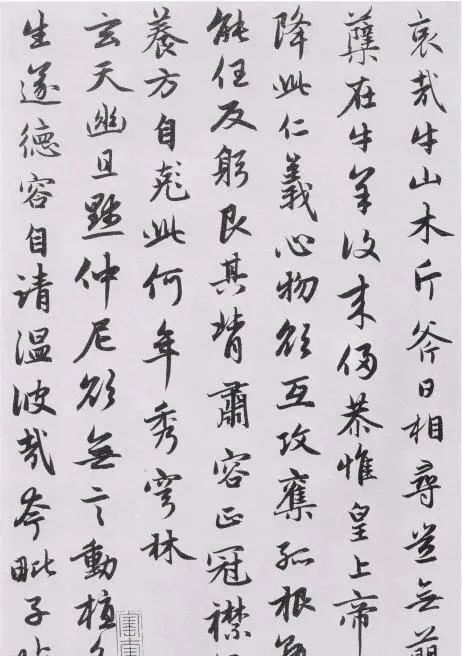 哀哉牛山木斤斧日相尋豈無萌
蘗在牛羊復来侵恭惟皇上帝
降此仁義心物欲互攻奪孤根孰
能任反躬艮其背肅容正冠襟
養方自此何年秀穹林
玄天幽且默仲尼欲無言動植各
生遂德容自清温彼哉夸毗子呫